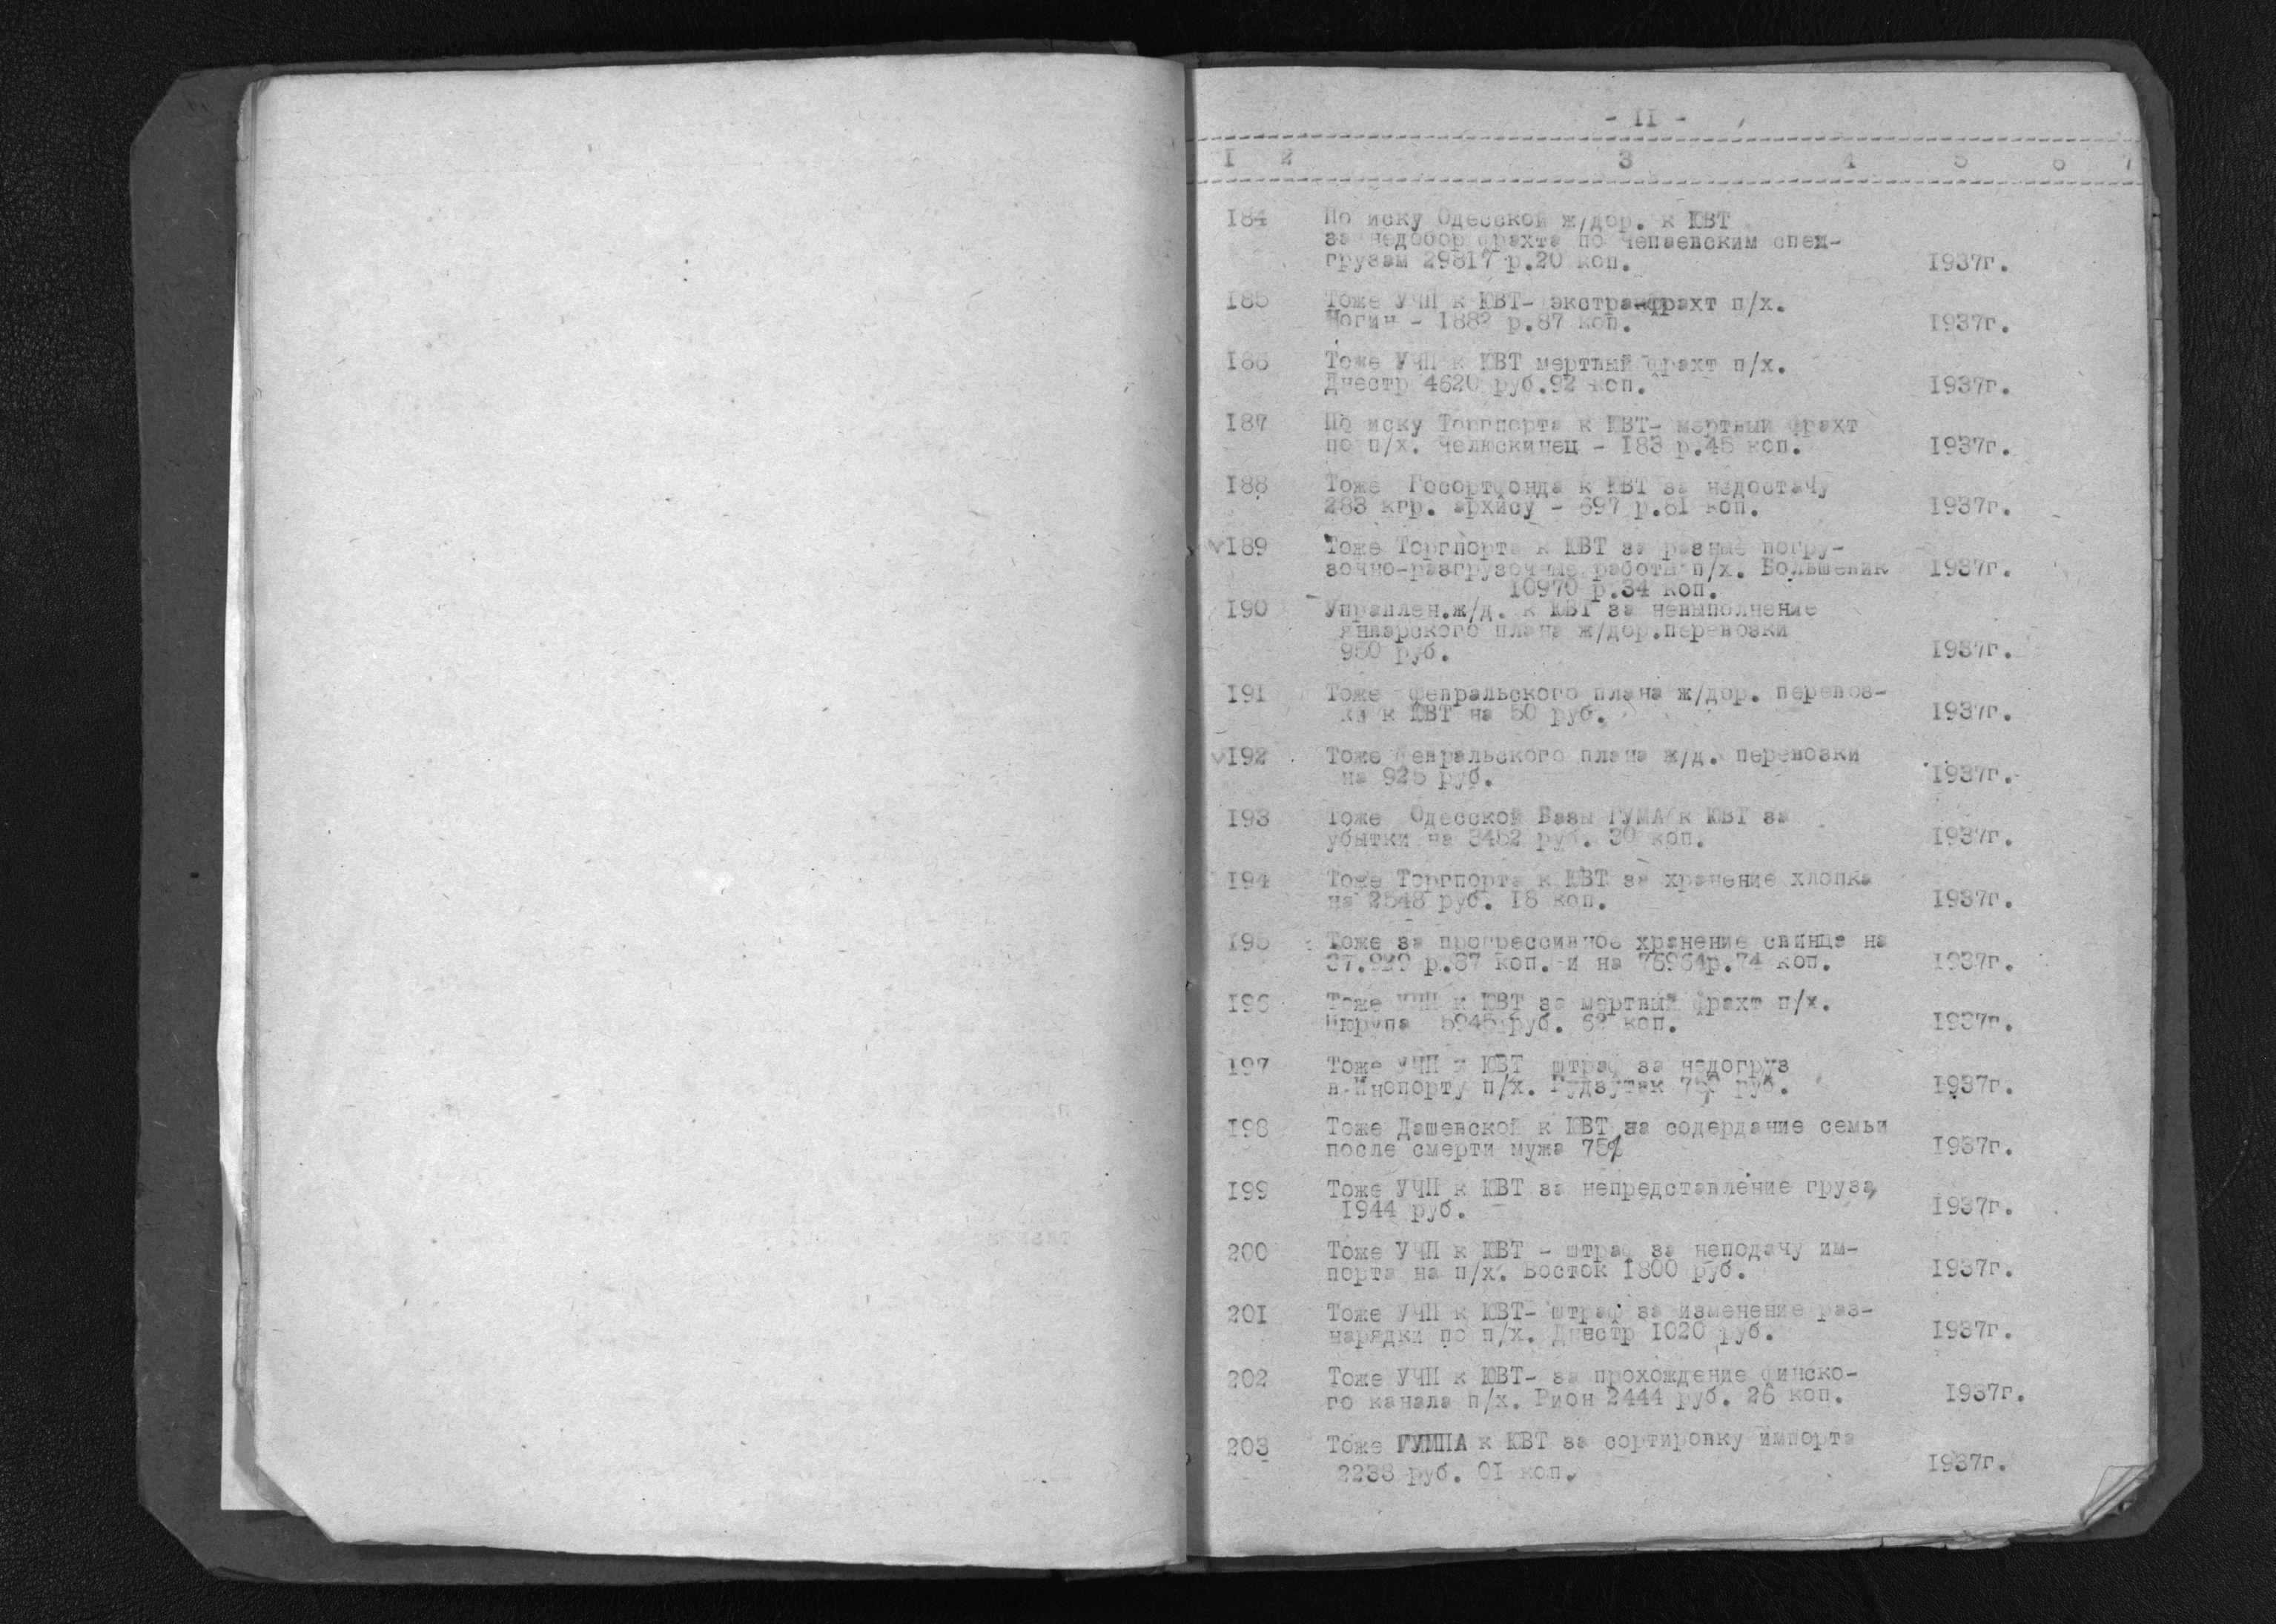 - II -
I 2 3 4 5 6 7
I84 По иску Одесской ж/дор. к ЮВТ
за недобор фрахта по Чепаевским спец-
грузам 29817 р.20 коп. I937г.
I85 Тоже УЧП к ЮВТ- экстра-фрахт п/х.
Ногин - I882 р.87 коп. I937г.
I86 Тоже УЧП к ЮВТ мертвый фрахт п/х.
Днестр 4620 руб.92 коп. I937г.
I87 По иску Торгпорта к ЮВТ- мертвый фрахт
по п/х. Челюскинец - I83 р.45 коп. I937г.
I88 Тоже Госортфонда к ЮВТ за недостачу
283 кгр. архису - 697 р.81 коп. I937г.
I89 Тоже Торгпорта к ЮВТ за разные погру-
зочно-разгрузочные работы п/х. Большевик I937г.
I0970 р.34 коп.
I90 Управлен.ж/д. к ЮВТ за невыполнение
январского плана ж/дор.перевозки
950 руб. I937г.
I91 Тоже февральского плана ж/дор. перевоз-
ки к ЮВТ на 50 руб. I937г.
I92 Тоже февральского плана ж/д. перевозки
на 925 руб. I937г.
I93 Тоже Одесской Базы ГУМА к ЮВТ за
убытки на 3452 руб. 30 коп. I937г.
I94 Тоже Торгпорта к ЮВТ за хранение хлопка
на 2548 руб. I8 коп. I937г.
I95 Тоже за прогрессивное хранение свинца на
37.929 р.87 коп. и на 76964р.74 коп. I937г.
I96 Тоже УЧП к ЮВТ за мертвый фрахт п/х.
Цюрупа 5945 руб. 62 коп. I937г.
I97 Тоже УЧП к ЮВТ штраф за недогруз
в Инопорту п/х. Гудзутак руб. I937г.
I98 Тоже Дашевской к ЮВТ на содердание семьи
после смерти мужа I937г.
I99 Тоже УЧП к ЮВТ за непредставление груза,
I944 руб. I937г.
200 Тоже УЧП к ЮВТ - штраф за неподачу им-
порта на п/х. Восток I800 руб. I937г.
20I Тоже УЧП к ЮВТ- штраф за изменение раз-
нарядки по п/х. Днестр I020 руб. I937г.
202 Тоже УЧП к ЮВТ- за прохождение финско-
го канала п/х. Рион 2444 руб. 26 коп. I937г.
203 Тоже ГУМПА к ЮВТ за сортировку импорта
2238 руб. 0I коп. I937г.